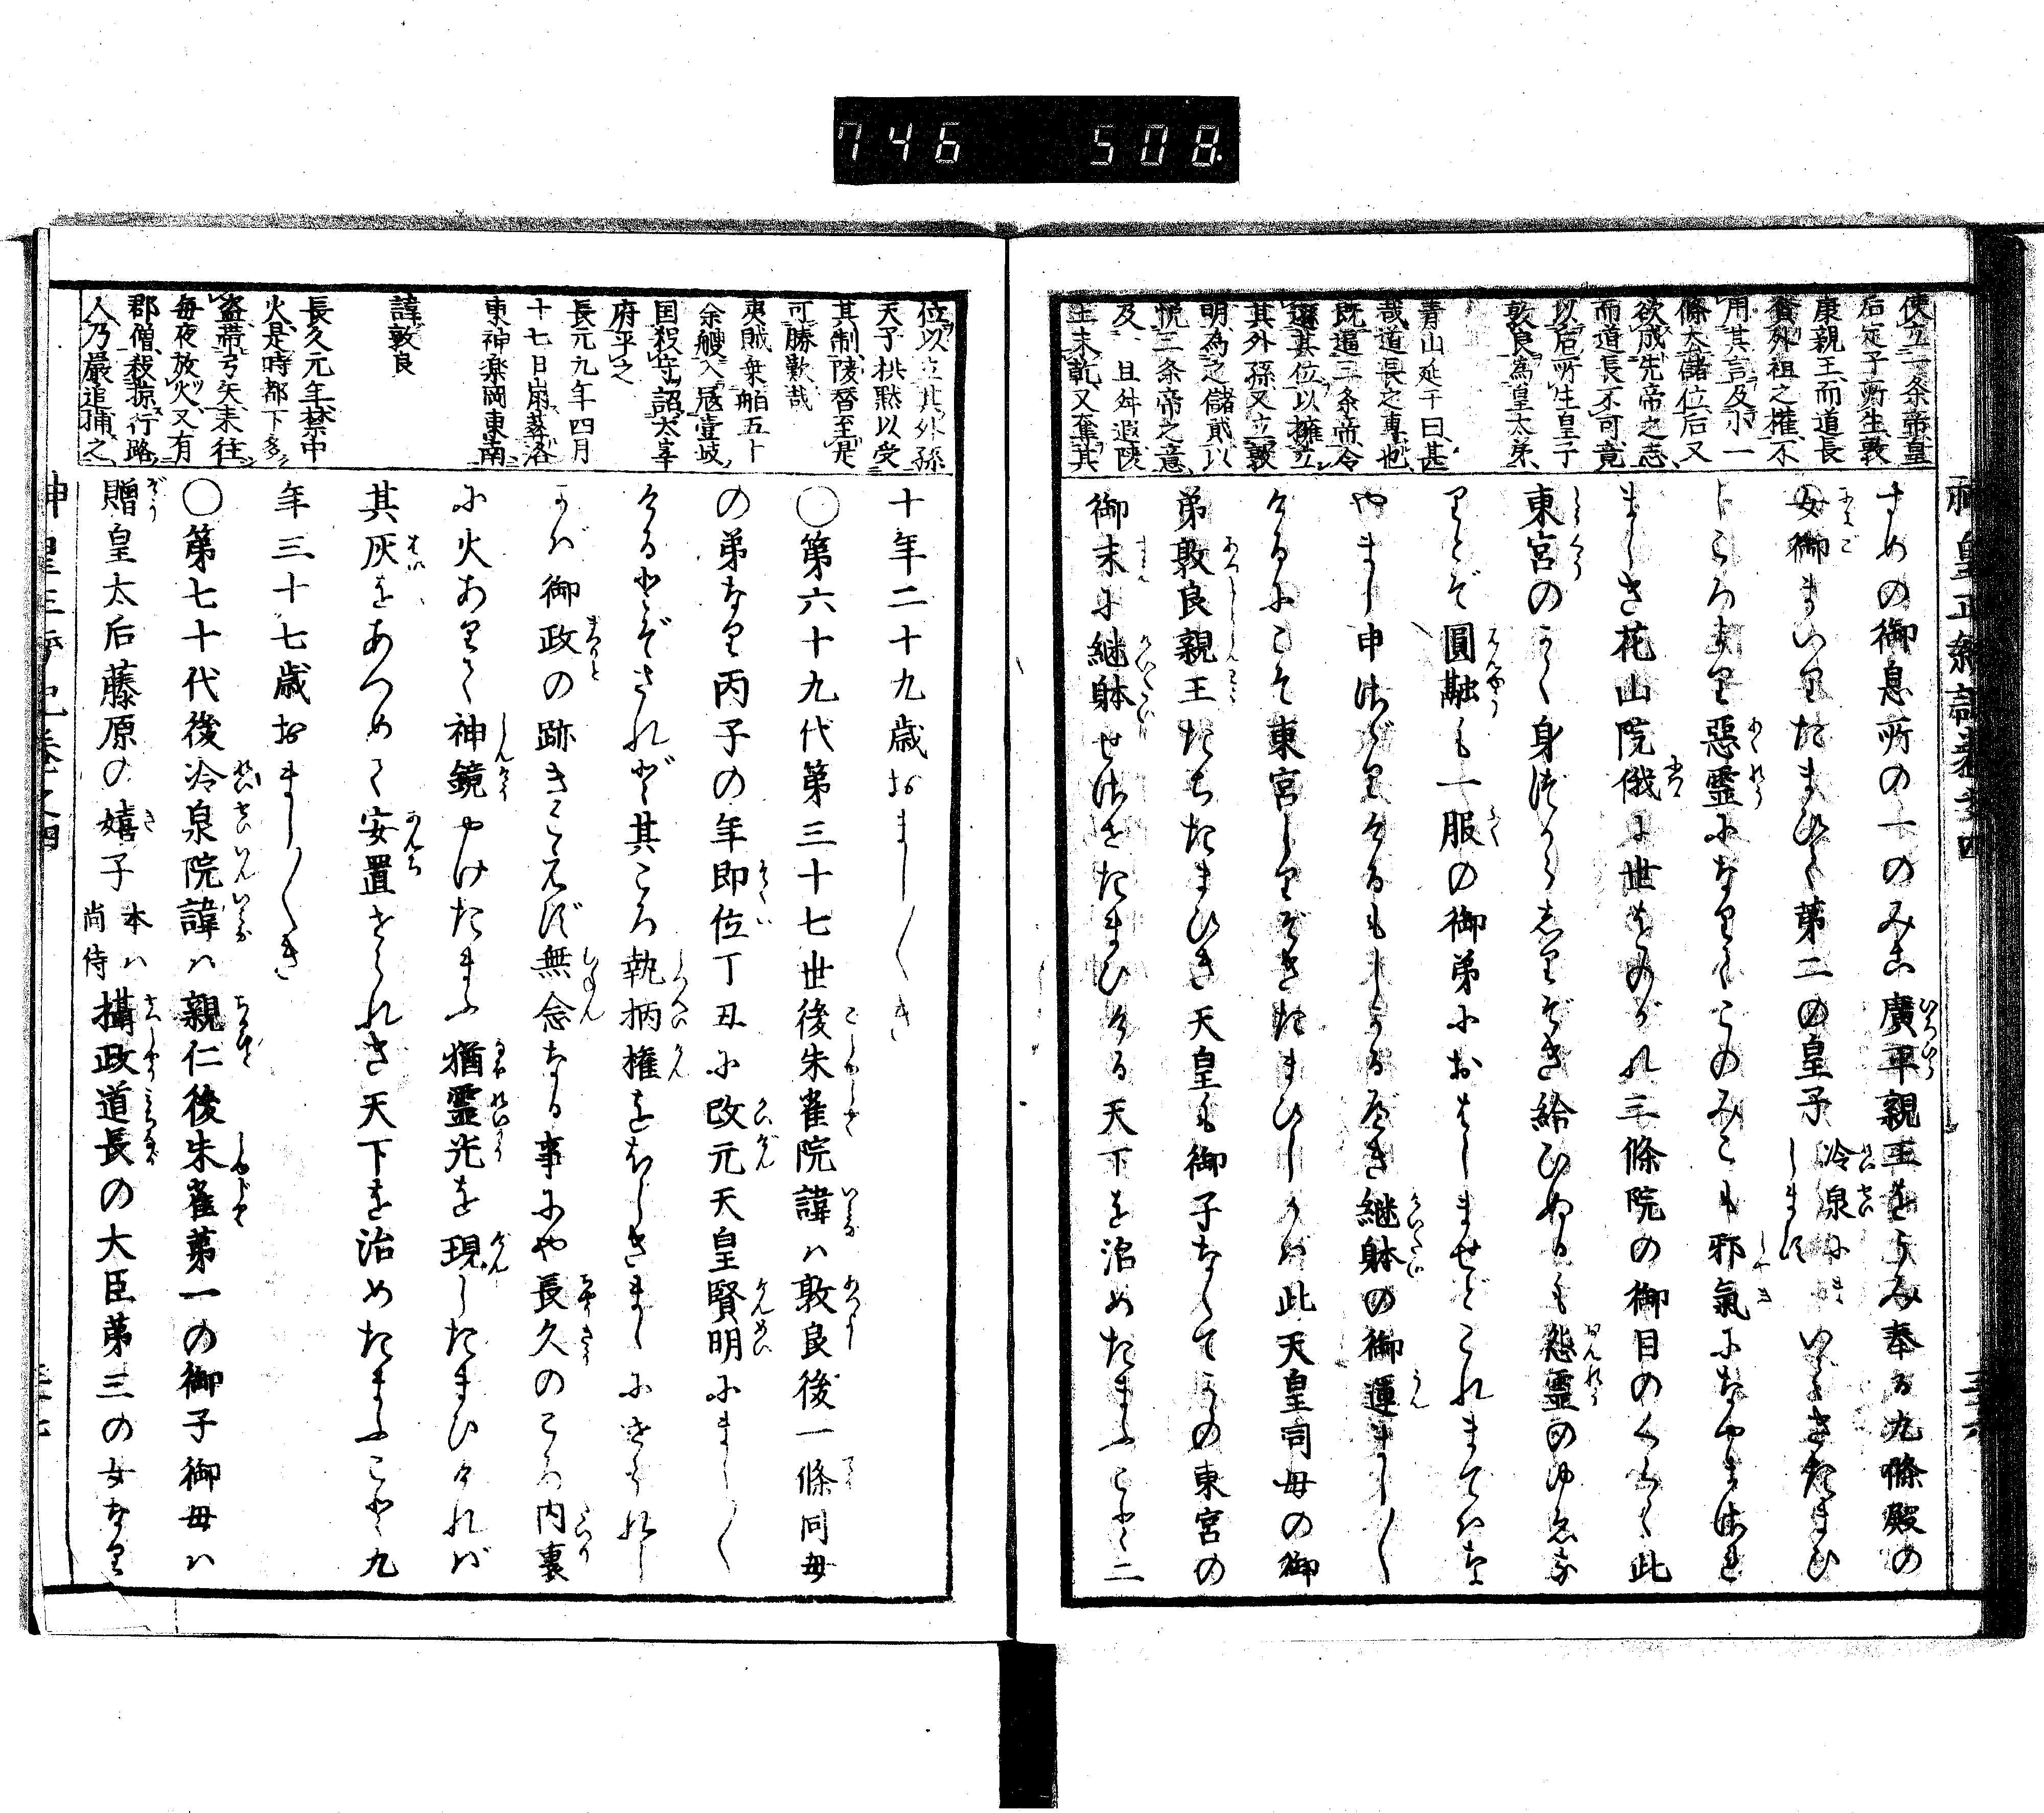 746 508
使立一条帝皇
后定子所生敦
康親王而道長
賚外祖之権不
用其言及小一
條太儲位后又
欲成先帝之志
而道長不可竟
以后所生皇子
敦良為皇太弟
青山延于曰甚
哉道長之専也
既逼三条帝令
遜其位以擁立
其外孫又立敦
明為之儲貳以
悦三条帝之意
及 且舛遐陵
土未乾又奪其
すめの御息所の一のみこ廣平親王をうみ奉る九條殿の
女御まいりたまひて第二の皇子冷泉にましますいできたまひ
しころより惡霊になりてこのみこも邪氣になやまされ
ましき花山院俄に世をのがれ三條院の御目のくらく此
東宮のかく身づからしりぞき給ひぬるも怨霊のゆゑな
りとぞ圓融も一服の御弟におはしませどこれまてはな
やまし申さゞりけるもしかるべき継躰の御運まし〱
けるにこそ東宮しりぞきたまひしかば此天皇同母の御
弟敦良親王たちたまひき天皇も御子なくてかの東宮の
御末に継躰せさせたまひける天下を治めたまふこと二
位以立其外孫
天子拱黙以受
其制陵替至是
可勝歎哉
夷賊乗舶五十
余艘入寇壹岐
国殺守詔太宰
府平之
長元九年四月
十七日崩葬洛
東神楽岡東南
諱敦良
長久元年禁中
火是時都下多
盗帯弓矢来往
毎夜放火又有
郡僧殺掠行路
人乃厳追捕之
十年二十九歳おまし〱き
〇第六十九代第三十七世後朱雀院諱ハ敦良後一條同母
の弟なり丙子の年即位丁丑に改元天皇賢明にまし〱
けるとぞされど其ころ執柄権をほしきまゝにせられし
かば御政の跡きこえず無念なる事にや長久のころ内裏
に火ありて神鏡やけたまふ猶霊光を現したまひければ
其灰をあつめて安置せられき天下を治めたまふこと九
年三十七歳おまし〱き
〇第七十代後冷泉院諱ハ親仁後朱雀第一の御子御母ハ
贈皇太后藤原の嬉子本ハ尚侍攝政道長の大臣第三の女なり